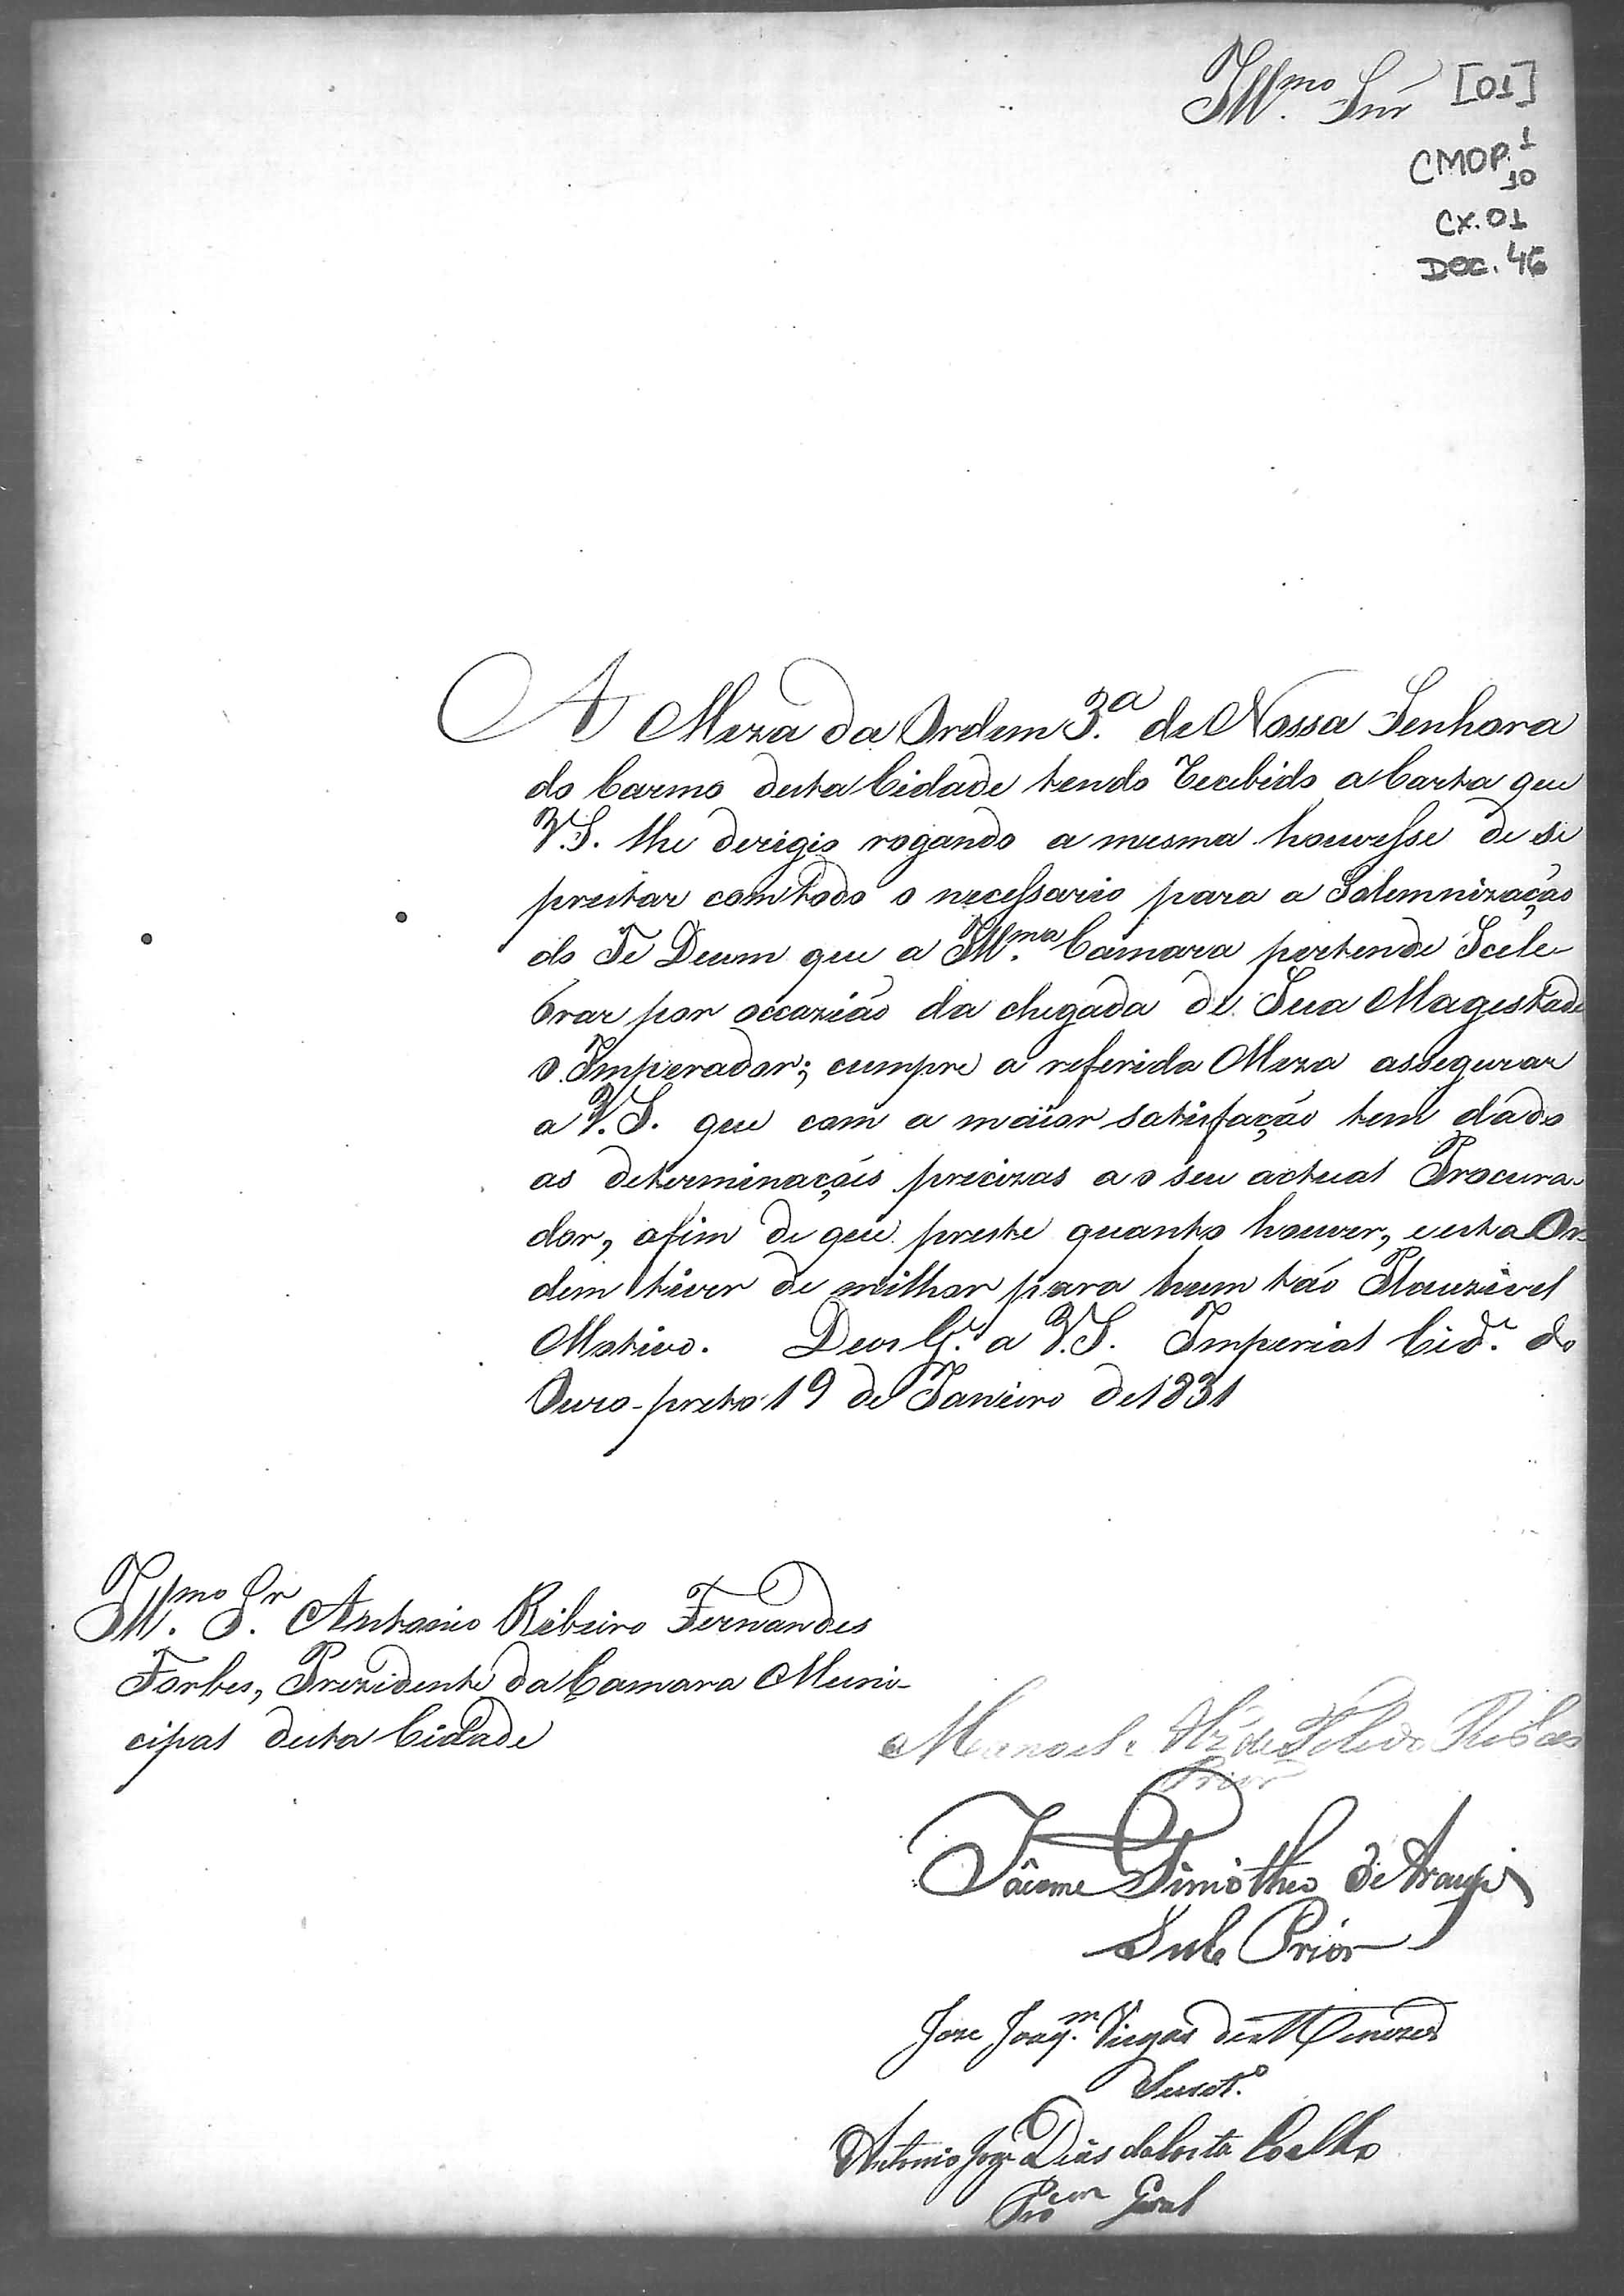 Ill.mo Snr [01]
CMOP. 1
10
CX. 01
DOC. 46
A Meza da Ordem 3.a de Nossa Senhora
do Carmo desta Cidade tendo recebido a Carta que
V.S. lhe derigio rogando a mesma houvesse de se
prestar com todo o necessario para a Solemnização
do Te Deum que a Ill.ma Camara pertende Scele-
brar por occazião da chegada de Sua Magestade
o Imperador; cumpre a referida Meza assegurar
a V.S. que com a maior satisfação tem dado
as determinaçoìs precizas ao seu actual Procura-
dor, afim de que preste quanto houver, e esta Or-
dem tiver de milhor para hum tão Plauzivel
Motivo. Deos G.e a V.S. Imperial Cid.e do
Ouro-preto 19 de Janeiro de 1831
Ill.mo Sr. Antonio Ribeiro Fernandes
Forbes, Prezidente da Camara Muni-
cipal desta Cidade
Manoel de Toledo Ribas
Prior
Jaime Timotheo de Araujo
Sub Prior
Joze Joaq.m Viegas de Menezes
Secret.o
Antonio Joze Dias da Costa Coelho
Procor Geral